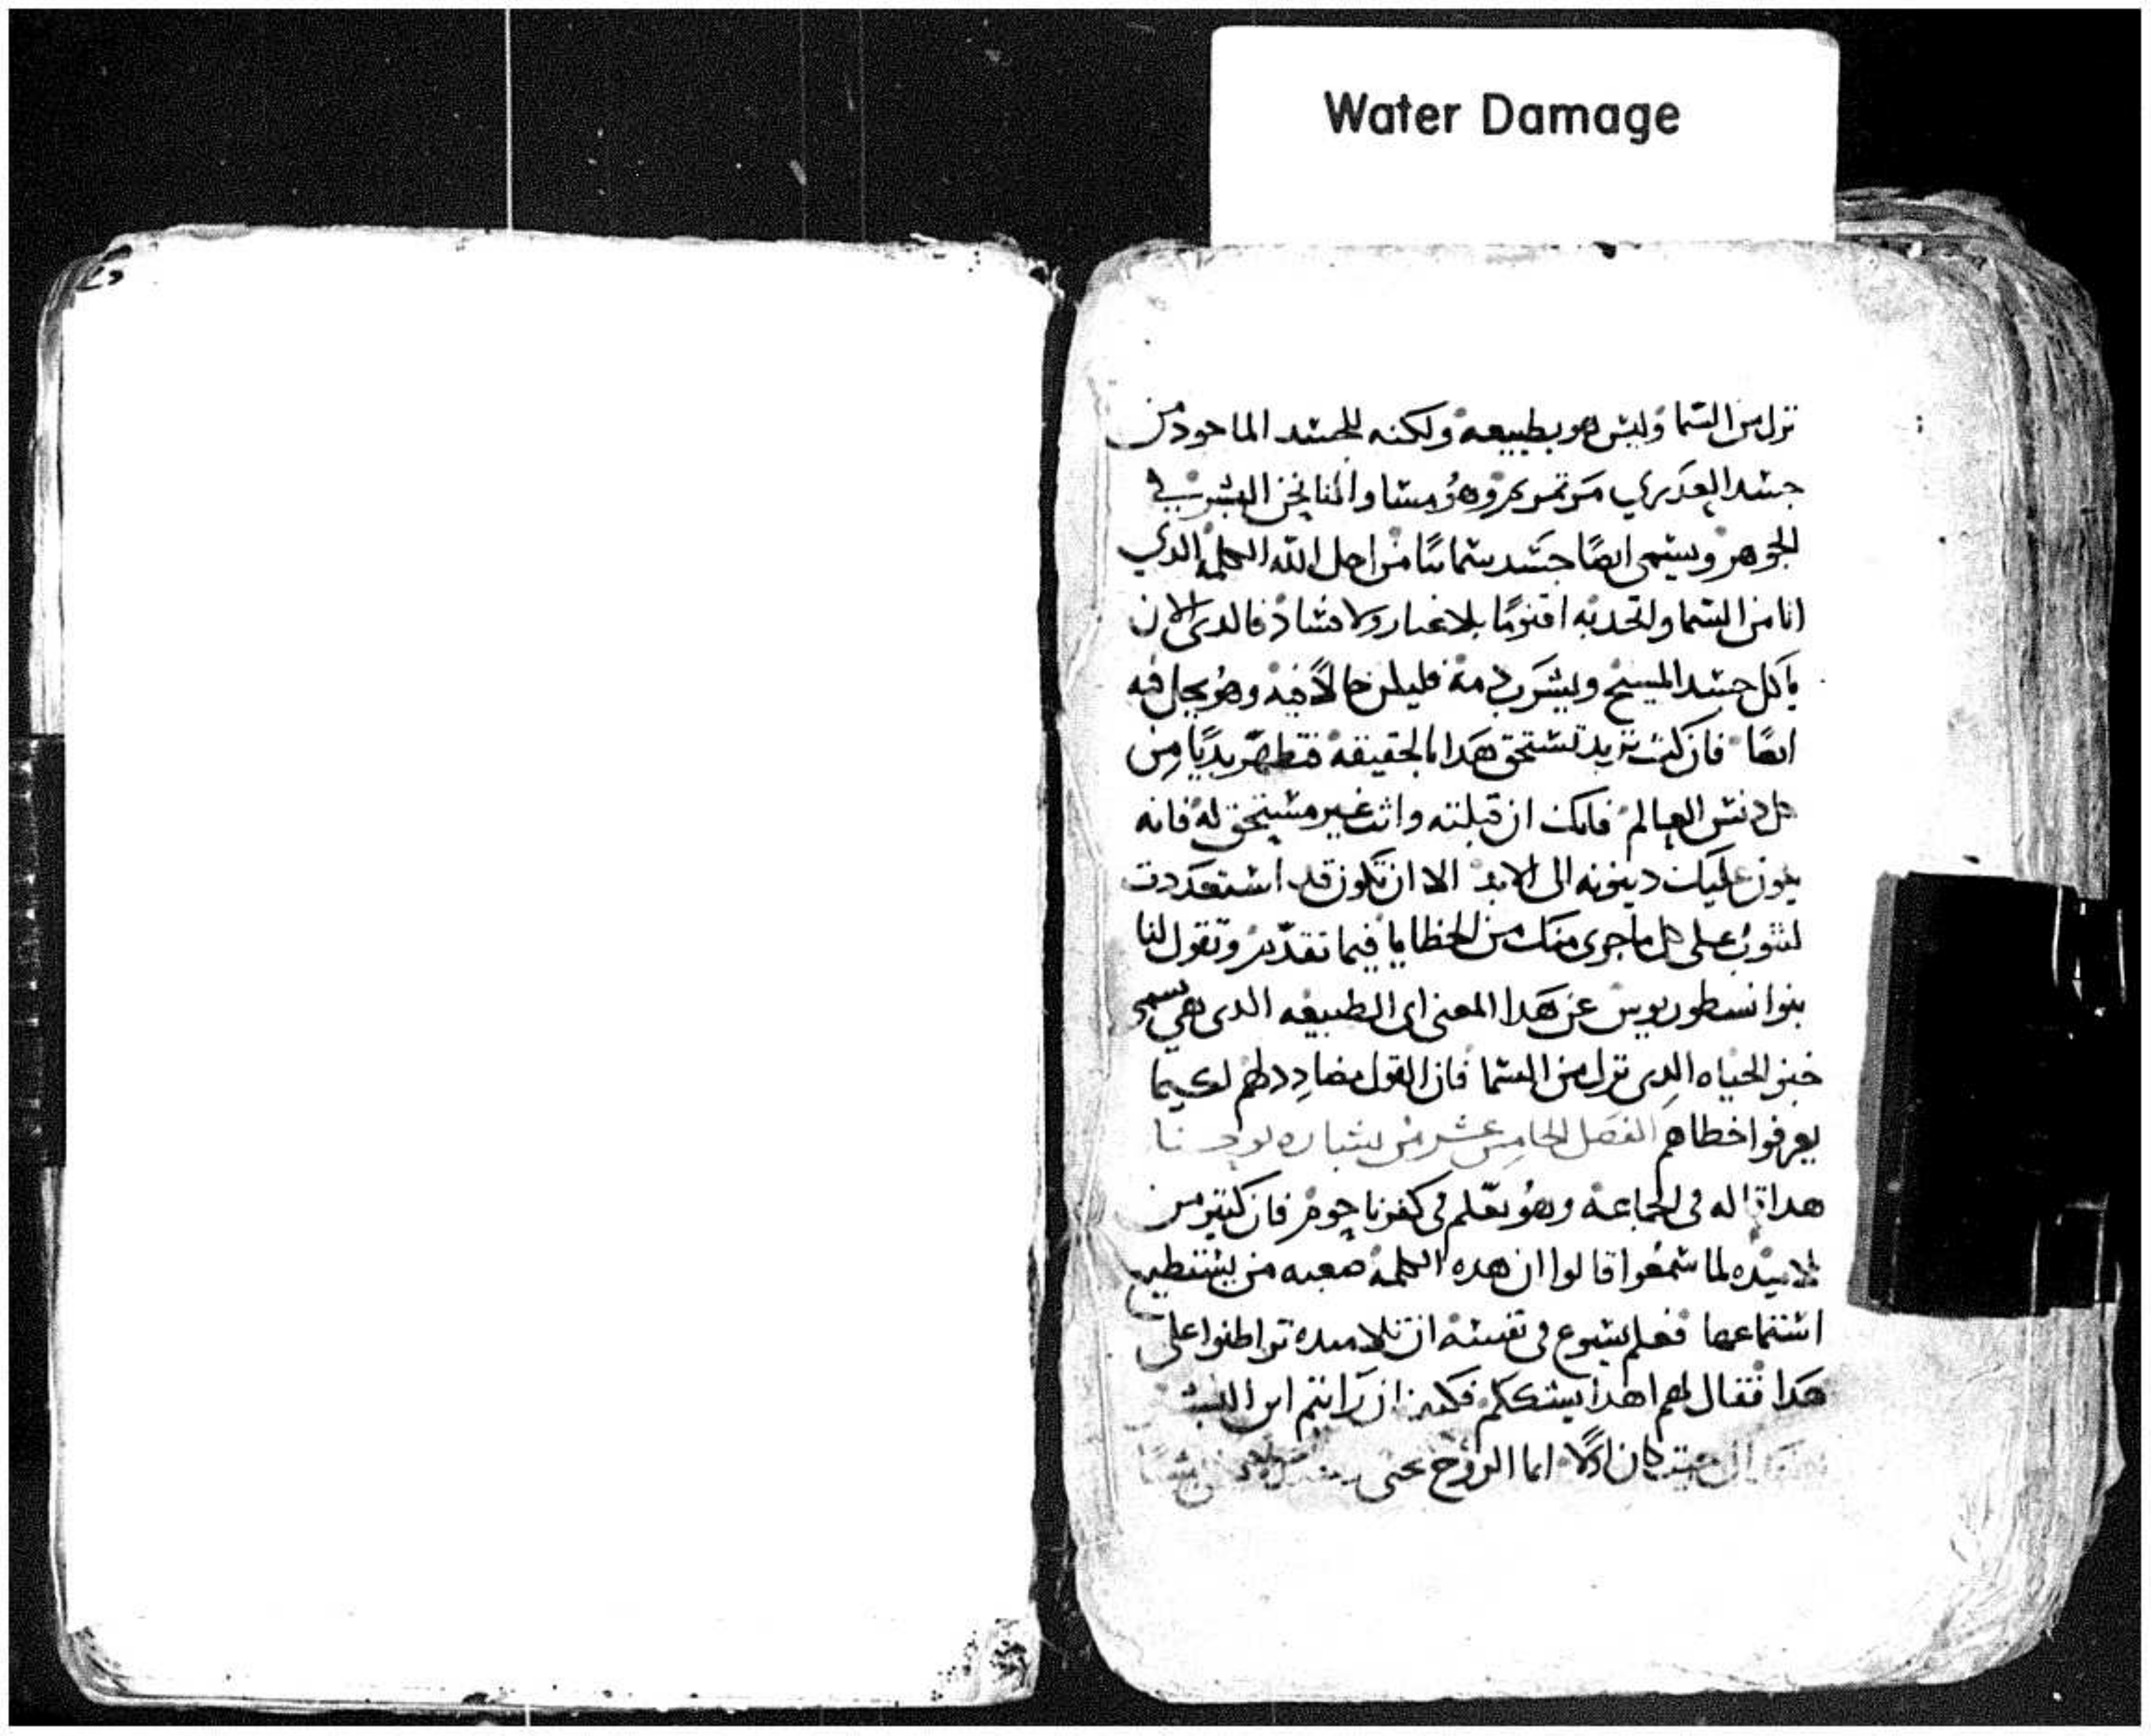 Water Damage
نزل من السما وليس هو بطبيعه ولكنه للجسد الماخود من
جسد العدري مرتمريم وهو مساو لنا نحن البشر في
الجوهر ويسمى ايضًا جسد سمائيًا من اجل الله الكلمه الدي
اتا من السما واتحد به اقنومًا بلا غيار ولا فساد فالدى الان
ياكل جسد المسيح ويشرب دمه فليكن حالاً فيه وهو يحل فيه
ايضًا فان كنت تريد تستحق هدا بالحقيقه فتطهر بديًا من
كل دنس العالم فانك ان قبلته وانت غير مستحق له فانه
يكون عليك دينونه الى الابد الا ان تكون قد استعددت
لتتوب على كل ما جرى منك من الخطايا فيما تقدم وتقول لنا
بنوا نسطوريوس عن هدا المعنى اى الطبيعه الدى هي تسمى
خبز الحياه الدى نزل من السما فان القول مضادد لهم لكيما
يعرفوا خطاهم الفصل الخامس عشر من بشاره يوحنا
هدا قاله في الجماعه وهو يعلم في كفرناحوم فان كثير من
تلاميده لما سمعوا قالوا ان هده الكلمه صعبه من يستطيع
استماعها فعلم يسوع في نفسه ان تلاميده تواطنوا على
هدا فقال لهم اهدا يشككم فكيف ان رايتم ابن البشر
الى حيث كان اولاً انما الروح تحيى